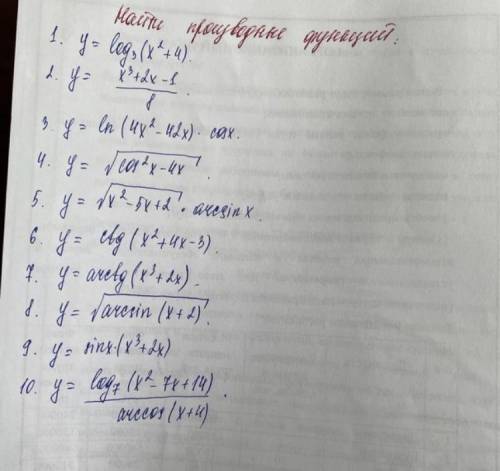 Найти производные функций:
1. y = log₃(x²+4).
2. y = (x³+2x-1)/8.
3. y = ln(4x²-42x)·cosx.
4. y = √(cos²x-4x).
5. y = √(x²-5x+2)·arcsin x.
6. y = ctg(x²+4x-3).
7. y = arcctg(x³+2x).
8. y = √(arcsin(x+2)).
9. y = sinx·(x³+2x)
10. y = log₇(x²-7x+14)/arccos(x+4).